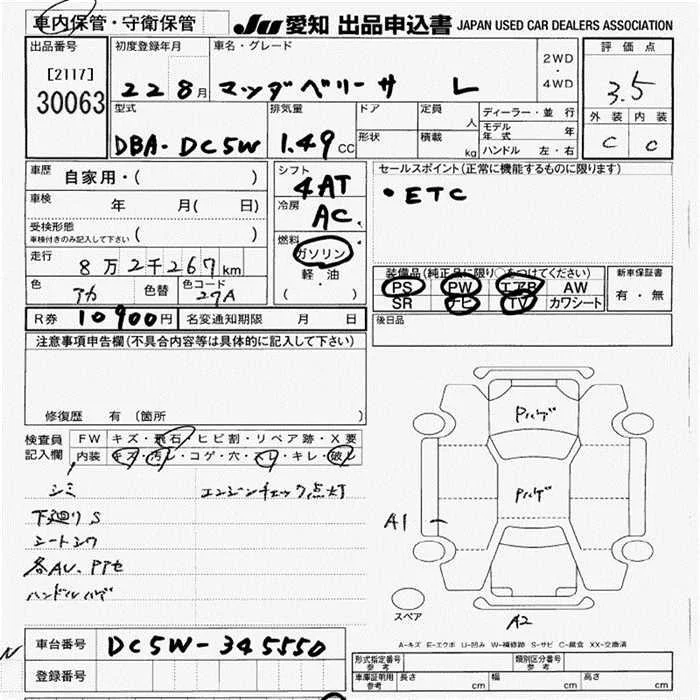 車内保管・守衛保管
JU 愛知 出品申込書 JAPAN USED CAR DEALERS ASSOCIATION
出品番号 初度登録年月 車名・グレード 2WD・4WD 評価点
[2117]
30063
22 8月 マツダベリーサ L 3.5
型式 排気量 ドア 定員 人 ディーラー・並行 外装 内装
モデル年式 年
DBA-DC5W 1.49CC 形状 積載 kg ハンドル 左・右 C C
車歴 自家用・( ) シフト 4AT セールスポイント(正常に機能するものに限ります)
・ETC
車検 年 月( 日) 冷房 AC
受検形態
車検付きのみ記入して下さい ( )
燃料 ガソリン・軽・油 ( )
走行 8万2千267km
装備品(純正品に限り○をつけてください) 新車保証書
色 アカ 色替 色コード 27A
PS PW エアB AW 有・無
SR ナビ TV カワシート
R券 10900円 名変通知期限 月 日 後日品
注意事項申告欄(不具合内容等は具体的に記入して下さい)
修復歴 有 (箇所 )
検査員記入欄 FW キズ・飛石・ヒビ割・リペア跡・X要
内装 キズ・汚レ・コゲ・穴・スレ・キレ・破レ
シミ エンジンチェック点灯
下廻りS
シートシワ
各AU、PPセ
ハンドルハゲ
Pハゲ
Pハゲ
A1
スペア
A2
A-キズ E-エクボ U-凹み W-補修跡 S-サビ C-腐食 XX-交換済
車台番号 DC5W-345550
登録番号
形式指定番号 参考 類別区分番号 参考
車庫証明用 参考 長さ cm 幅 cm 高さ cm